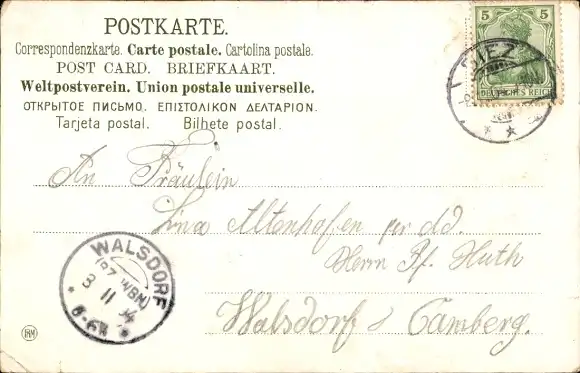 POSTKARTE.
Correspondenzkarte. Carte postale. Cartolina postale.
POST CARD. BRIEFKAART.
Weltpostverein. Union postale universelle.
ОТКРЫТОЕ ПИСЬМО. ΕΠΙΣΤΟΛΙΚΟΝ ΔΕΛΤΑΡΙΟΝ.
Tarjeta postal. Bilhete postal.
5 5
DEUTSCHES REICH
DIEZ
An Fräulein
Lina Altenhofen per Ad.
Herrn Pf. Huth
Walsdorf Camberg.
WALSDORF
(BZ. WBN)
3
11
04
6-